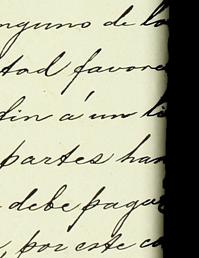 nguno de lo
tad favore
fin á un li
partes han
debe pagar
, por este co